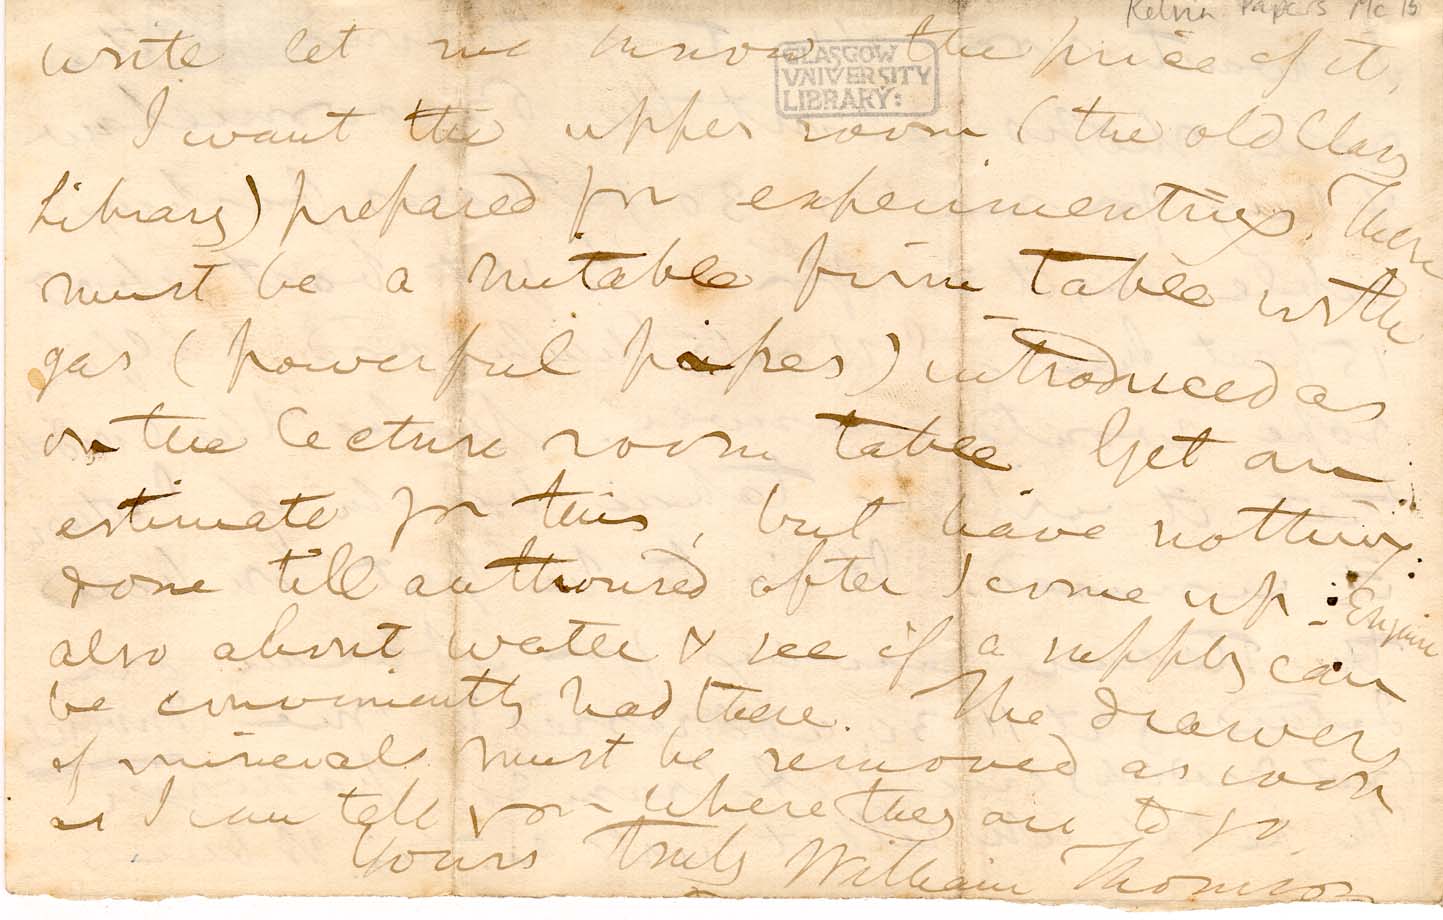 Kelvin Papers Mc 15
write let me know the price of it,
GLASGOW
UNIVERSITY
LIBRARY:
I want the upper room (the old Class
Library) prepared for experimenting. There
must be a suitable firm table with
gas (powerful pipes) introduced as
on the lecture room table. Get an
estimate for this, but have nothing
done till authorised after I come up. Enquire
also about water & see if a supply can
be conveniently had there. The drawers
of minerals must be removed as soon
as I can tell you where they are to go.
Yours Truly William Thomson